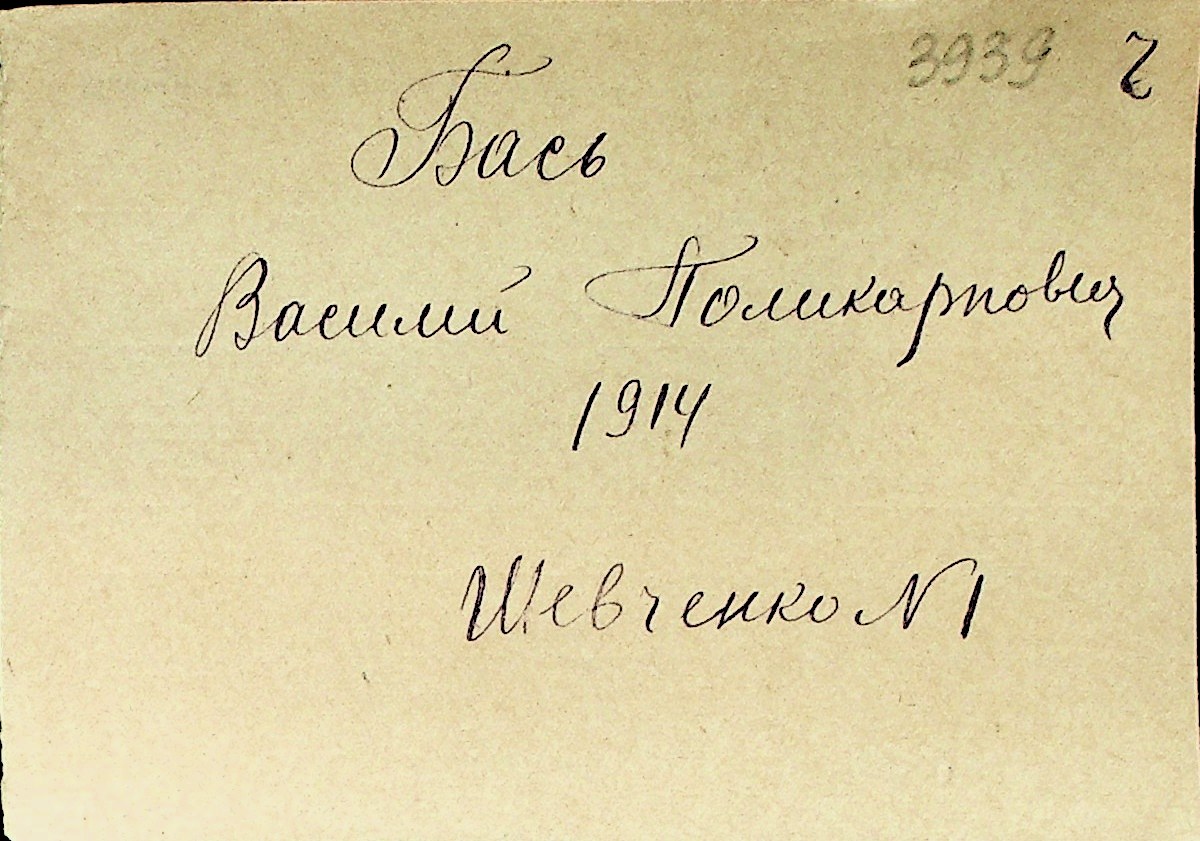 3939
Бась
Василий Поликарпович
1914
Шевченко N1